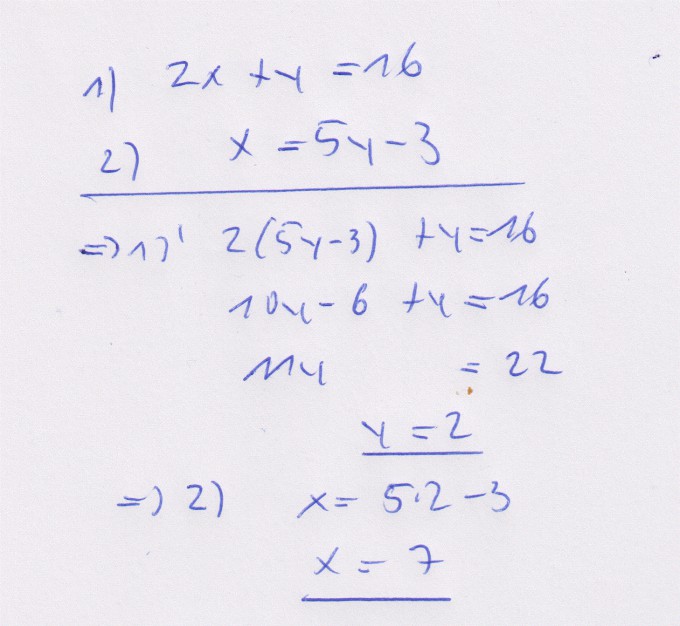 1) 2x + y = 16
2) x = 5y - 3
=> 1)' 2(5y-3) + y = 16
10y - 6 + y = 16
11y = 22
y = 2
=> 2) x = 5·2 - 3
x = 7